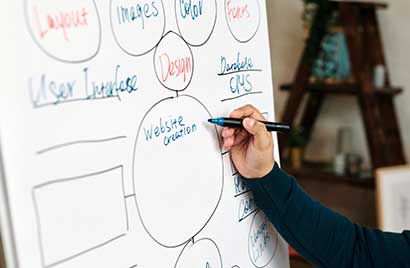 Layout
Images
Color
Fonts
Design
User Interface
Database
CMS
Website
creation